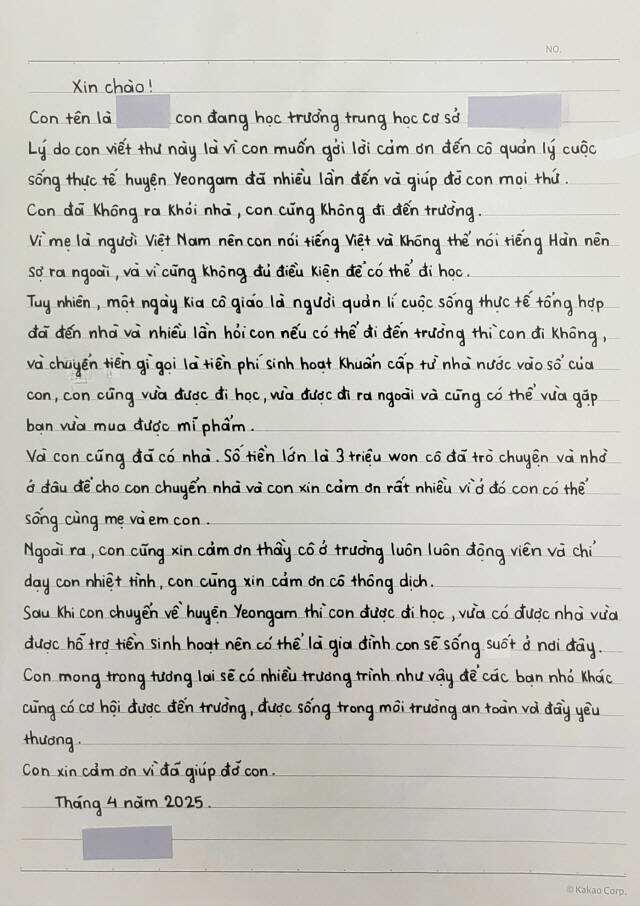 NO.
Xin chào!
Con tên là con đang học trường trung học cơ sở
Lý do con viết thư này là vì con muốn gởi lời cảm ơn đến cô quản lý cuộc
sống thực tế huyện Yeongam đã nhiều lần đến và giúp đỡ con mọi thứ.
Con đã không ra khỏi nhà, con cũng không đi đến trường.
Vì mẹ là người Việt Nam nên con nói tiếng Việt và không thể nói tiếng Hàn nên
sợ ra ngoài, và vì cũng không đủ điều kiện để có thể đi học.
Tuy nhiên, một ngày kia cô giáo là người quản lí cuộc sống thực tế tổng hợp
đã đến nhà và nhiều lần hỏi con nếu có thể đi đến trường thì con đi không,
và chuyển tiền gì gọi là tiền phí sinh hoạt khuẩn cấp từ nhà nước vào sổ của
con, con cũng vừa được đi học, vừa được đi ra ngoài và cũng có thể vừa gặp
bạn vừa mua được mĩ phẩm.
Và con cũng đã có nhà. Số tiền lớn là 3 triệu won cô đã trò chuyện và nhờ
ở đâu để cho con chuyển nhà và con xin cảm ơn rất nhiều vì ở đó con có thể
sống cùng mẹ và em con.
Ngoài ra, con cũng xin cảm ơn thầy cô ở trường luôn luôn động viên và chỉ
dạy con nhiệt tình, con cũng xin cảm ơn cô thông dịch.
Sau khi con chuyển về huyện Yeongam thì con được đi học, vừa có được nhà vừa
được hỗ trợ tiền sinh hoạt nên có thể là gia đình con sẽ sống suốt ở nơi đây.
Con mong trong tương lai sẽ có nhiều trương trình như vậy để các bạn nhỏ khác
cũng có cơ hội được đến trường, được sống trong môi trường an toàn và đầy yêu
thương.
Con xin cảm ơn vì đã giúp đỡ con.
Tháng 4 năm 2025.
© Kakao Corp.